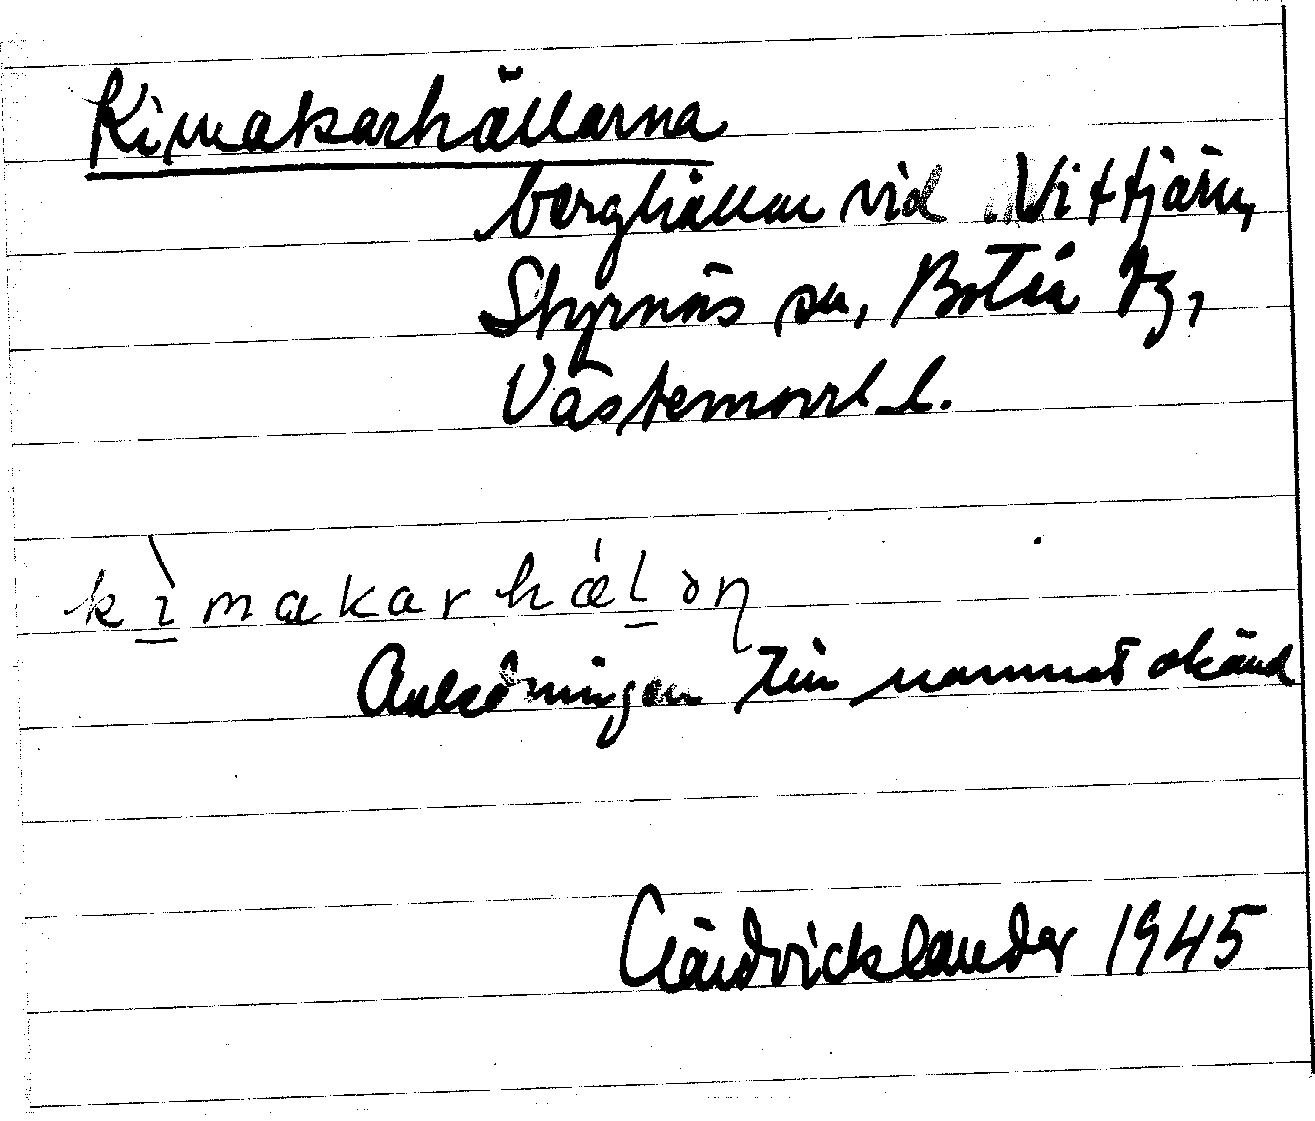 Kimakarhällarna
berghällar vid Vittjärn,
Styrnäs sn, Boteå tg,
Västernorrl. l.
kìmakarhǽlən
Anledningen till namnet okänd
1945